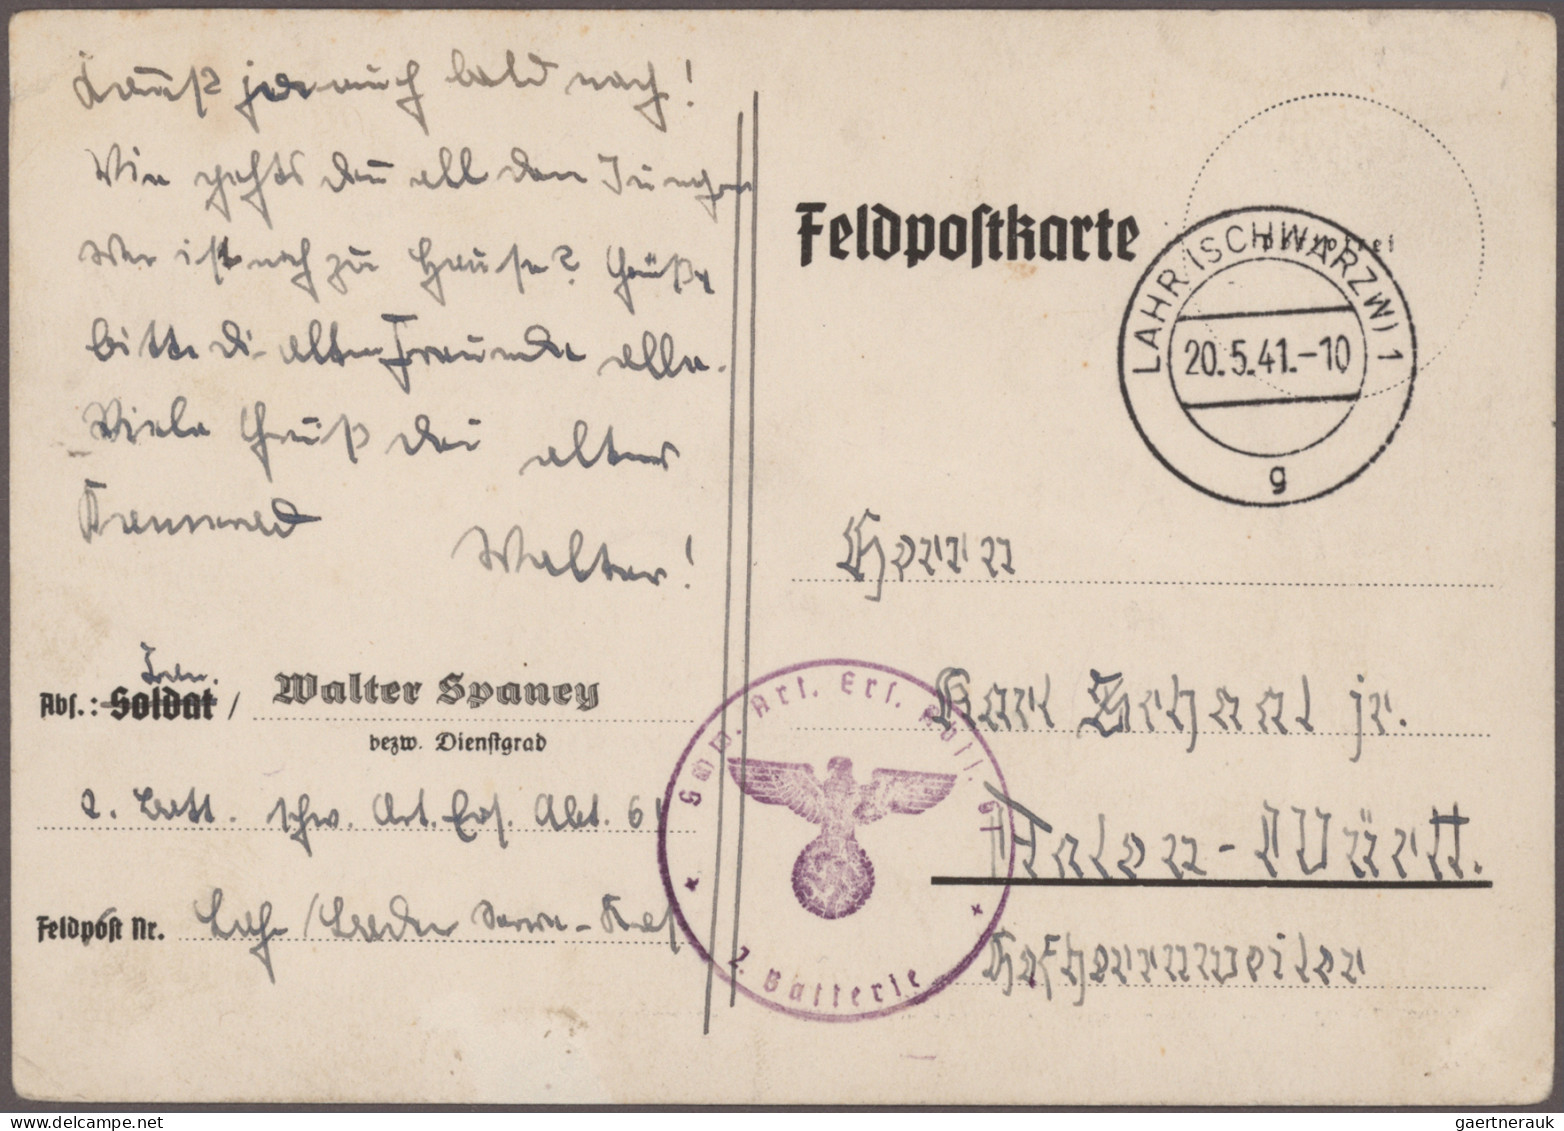 Kannst ja auch bald nach!
Wie gehts den̄ all den Jungen
Wer ist noch zu Hause? Grüße
bitte die alten Freunde alle.
Viele Grüß dei alter
Kamerad
Walter!
Abs.: Soldat / Walter Spaney
bezw. Dienstgrad
2. Batt. schw. Art. Ers. Abt. 61
Feldpost Nr. Lahr /Baden
Feldpostkarte
portofrei
LAHR (SCHWARZW) 1
20.5.41.-10
g
Herrn
Karl Schaal jr.
Aalen-Württ.
Hofherrnweiler
Schw. Art. Ers. Abtl. 61
2. Batterie
gaertnerauk